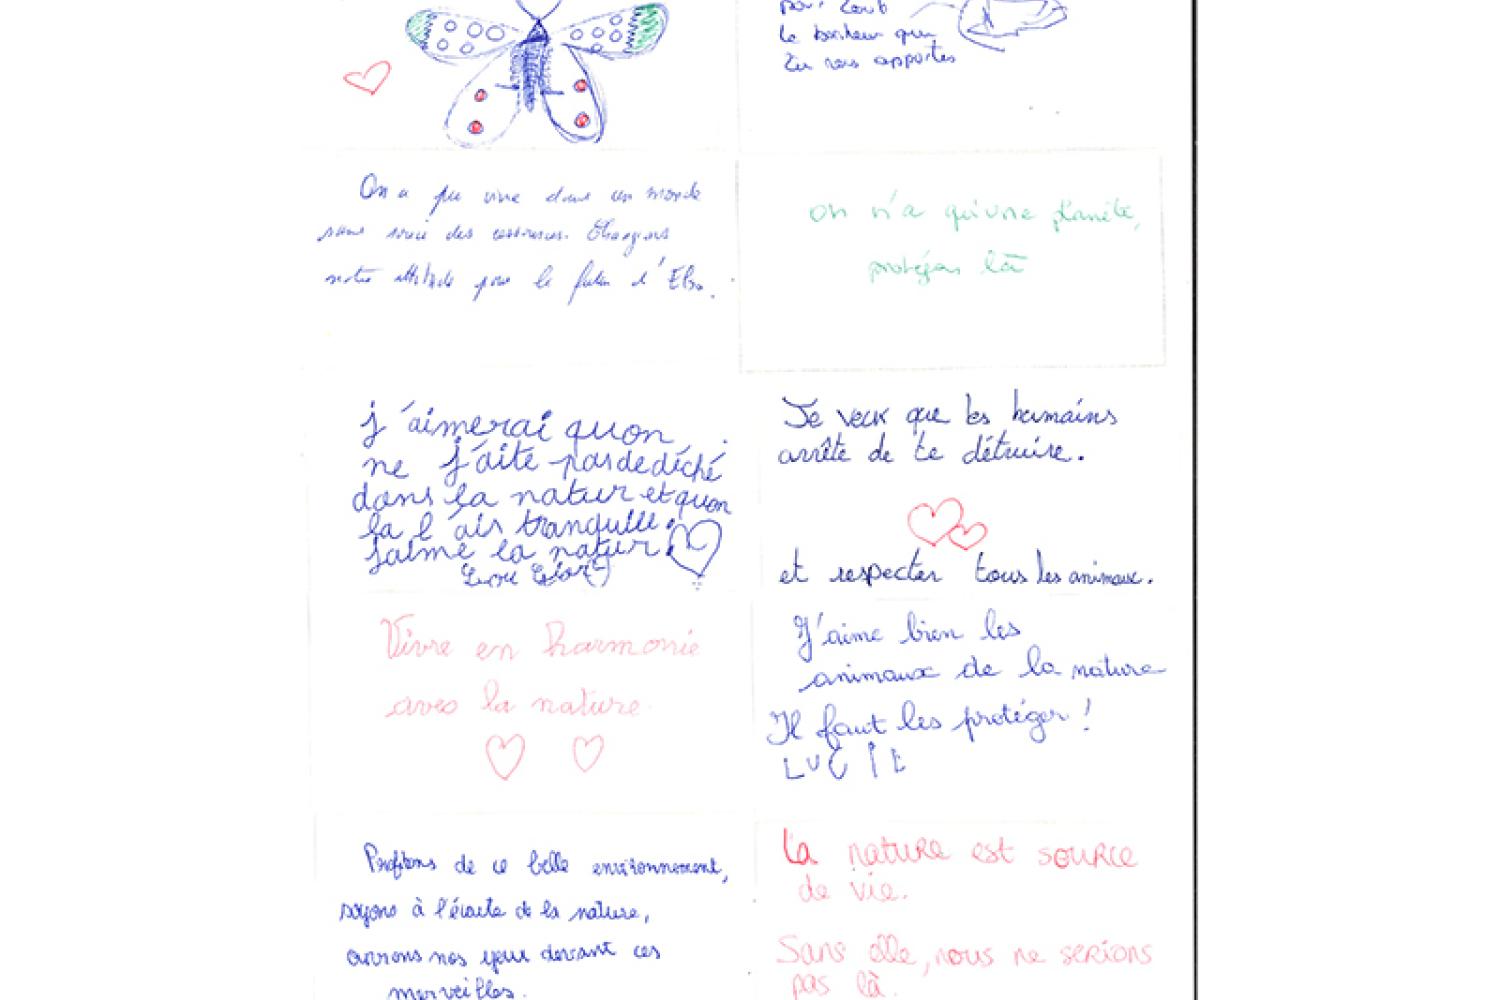 pour tout
le bonheur que
tu nous apportes
On a pu vivre dans un monde
sans souci des ressources. Changeons
notre attitude pour le futur d'Elsa.
on n'a qu'une planète,
protégons là
j'aimerai quon
ne j'aite pas de déché
dans la natur et quon
la l'ais tranquille.
j'aime la natur.
Je veux que les humains
arrête de te détruire.
et respecter tous les animaux.
Vivre en harmonie
avec la nature.
J'aime bien les
animaux de la nature
Il faut les protéger !
LUCIE
Profitons de ce belle environnement,
soyons à l'écoute de la nature,
ouvrons nos yeux devant ces
merveilles.
La nature est source
de vie.
Sans elle, nous ne serions
pas là.